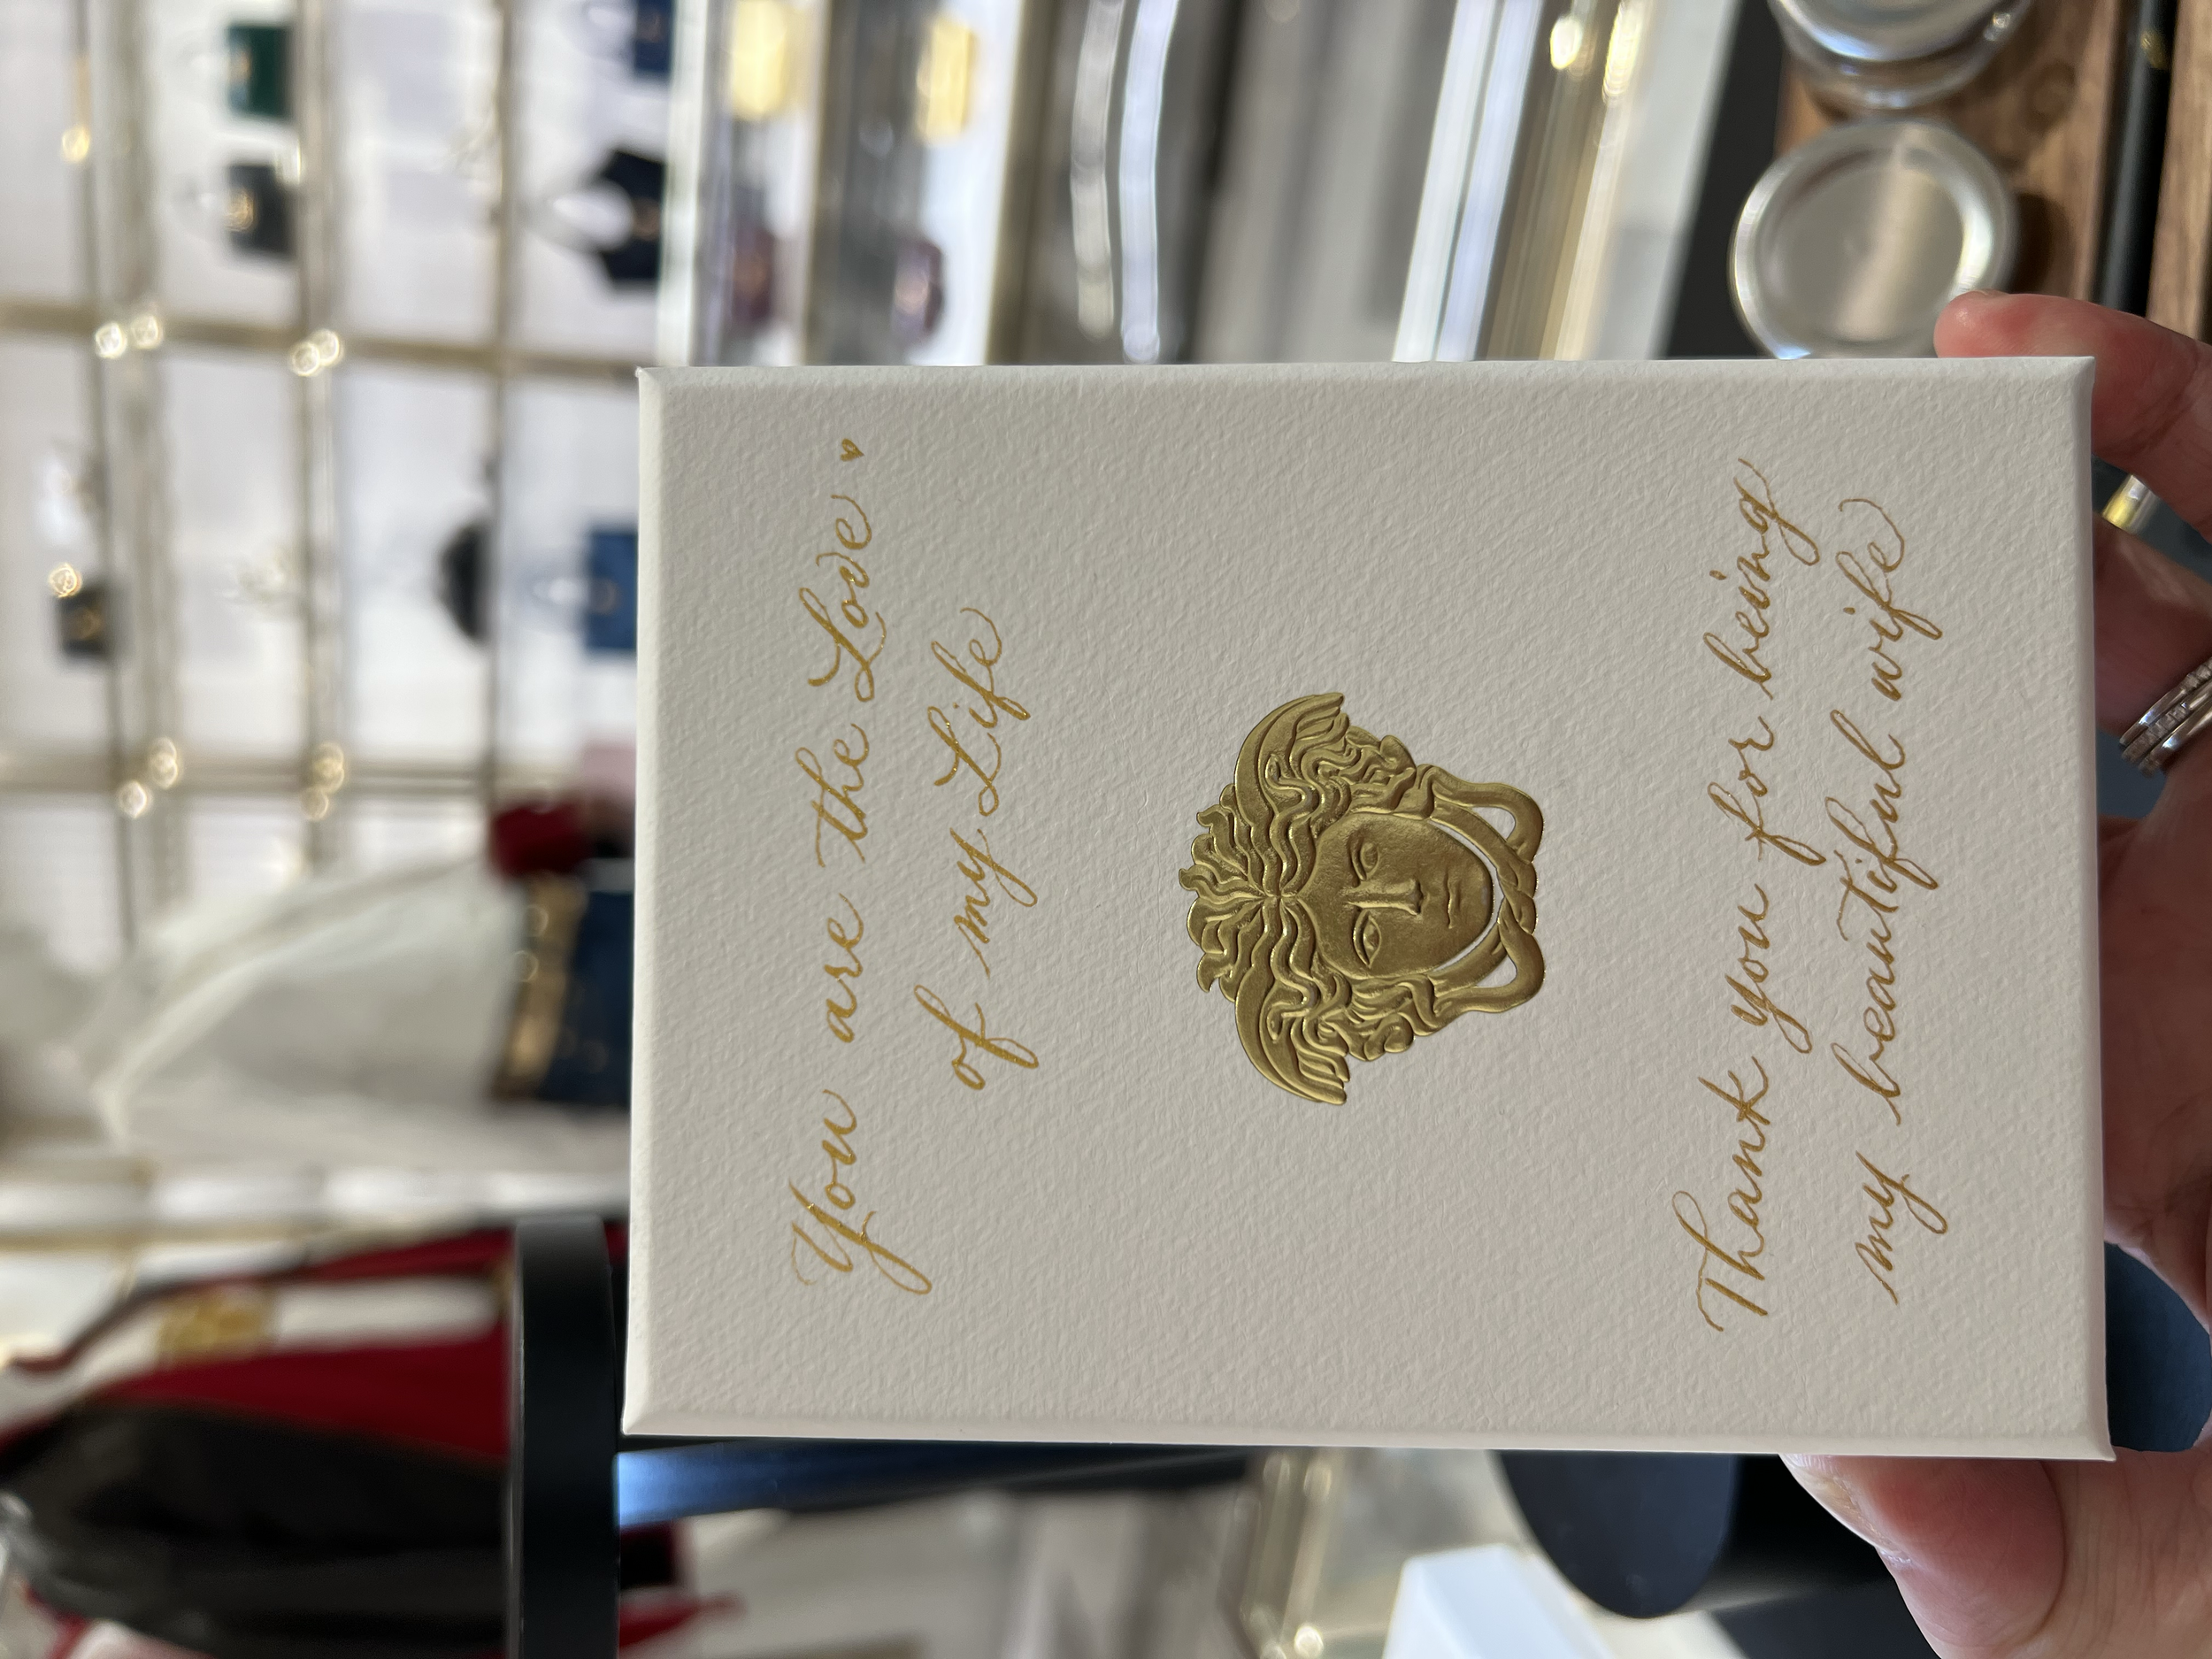 You are the Love
of my Life
Thank you for being
my beautiful wife